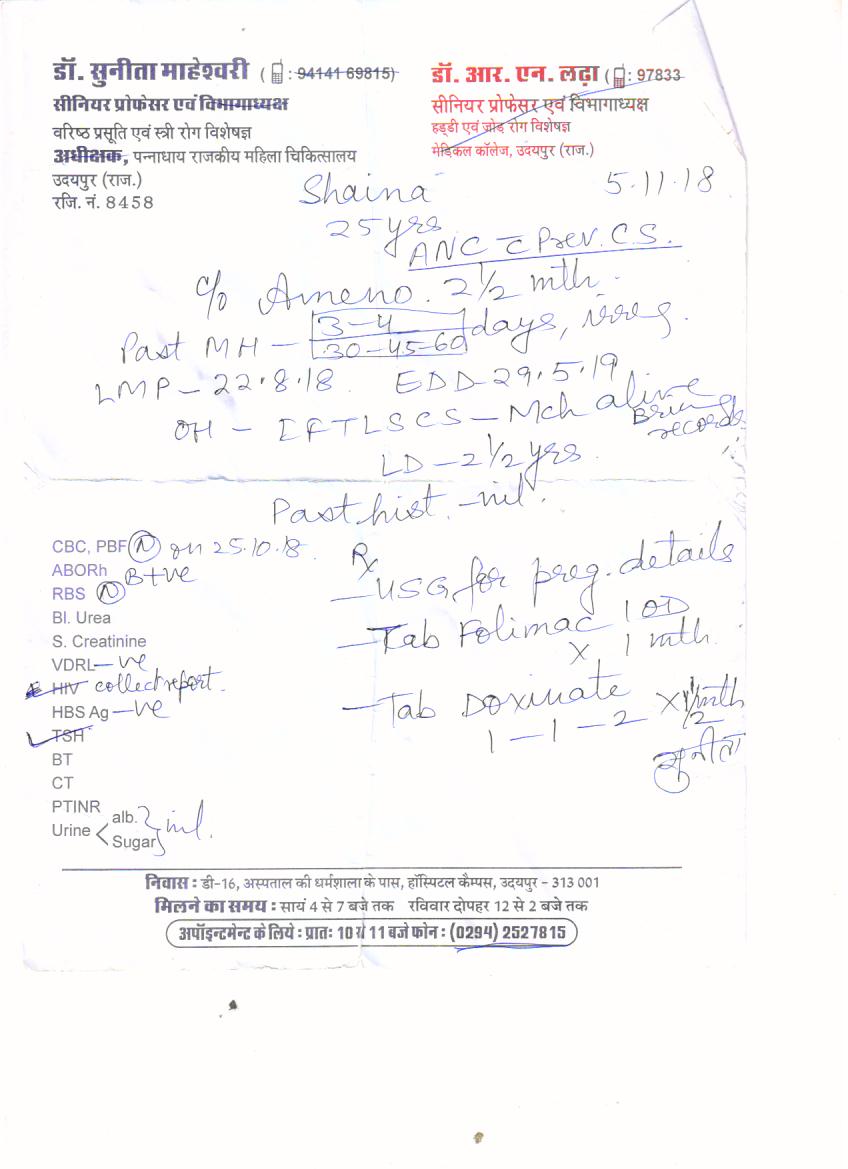 डॉ. सुनीता माहेश्वरी ( : 94141 69815)
सीनियर प्रोफेसर एवं विभागाध्यक्ष
वरिष्ठ प्रसूति एवं स्त्री रोग विशेषज्ञ
अधीक्षक, पन्नाधाय राजकीय महिला चिकित्सालय
उदयपुर (राज.)
रजि. नं. 8458
डॉ. आर. एन. लढ़ा ( : 97833
सीनियर प्रोफेसर एवं विभागाध्यक्ष
हड्डी एवं जोड़ रोग विशेषज्ञ
मेडिकल कॉलेज, उदयपुर (राज.)
Shaina 5.11.18
25 yrs
ANC c̄ Prev. C.S.
c/o Ameno. 2 1/2 mth.
Past MH - 3-4 days, irreg.
30-45-60
LMP - 22.8.18 EDD - 29.5.19
OH - I FTLSCS - Mch alive
Bring records
LD - 2 1/2 yrs.
Past hist. - nil.
CBC, PBF (N) on 25.10.18.
ABORh B+ve
RBS (N)
Bl. Urea
S. Creatinine
VDRL -ve
HIV collect report.
HBS Ag -ve
TSH
BT
CT
PTINR
Urine < alb. Sugar } nil.
Rx
- USG for preg. details
- Tab Folimac 1 OD
x 1 mth.
- Tab Doxinate x 1/2 mth
1 - 1 - 2
सुनीता
निवास : डी-16, अस्पताल की धर्मशाला के पास, हॉस्पिटल कैम्पस, उदयपुर - 313 001
मिलने का समय : सायं 4 से 7 बजे तक रविवार दोपहर 12 से 2 बजे तक
अपॉइन्टमेन्ट के लिये : प्रातः 10 से 11 बजे फोन : (0294) 2527815